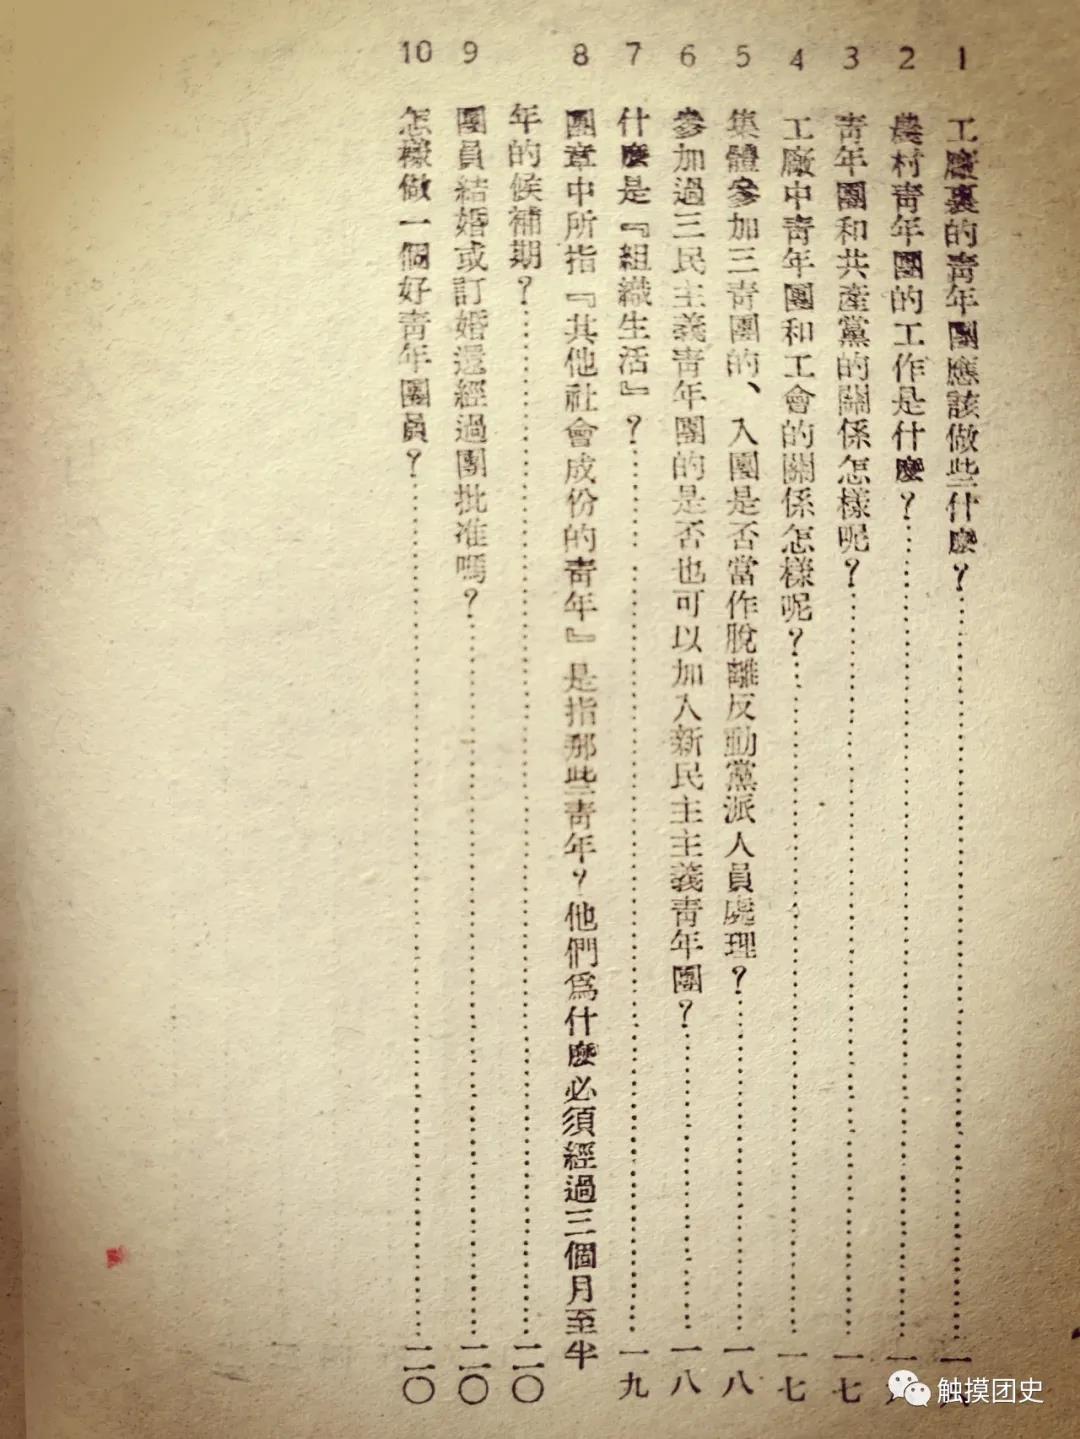 1 工廠裏的青年團應該做些什麽？……一
2 農村青年團的工作是什麽？……一
3 青年團和共產黨的關係怎樣呢？……一七
4 工廠中青年團和工會的關係怎樣呢？……一七
5 集體參加三青團的、入團是否當作脫離反動黨派人員處理？……一八
6 參加過三民主義青年團的是否也可以加入新民主主義青年團？……一八
7 什麽是『組織生活』？……一九
8 團章中所指『其他社會成份的青年』是指那些青年？他們爲什麽必須經過三個月至半
年的候補期？……二〇
9 團員結婚或訂婚還經過團批准嗎？……二〇
10 怎樣做一個好青年團員？……二〇
触摸团史